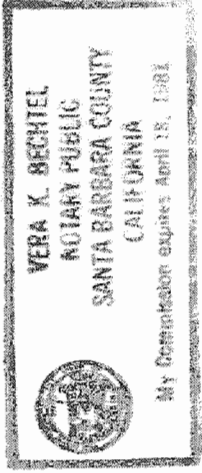 VERA K. BECHTEL
NOTARY PUBLIC
SANTA BARBARA COUNTY
CALIFORNIA
My Commission expires April 18, 1981